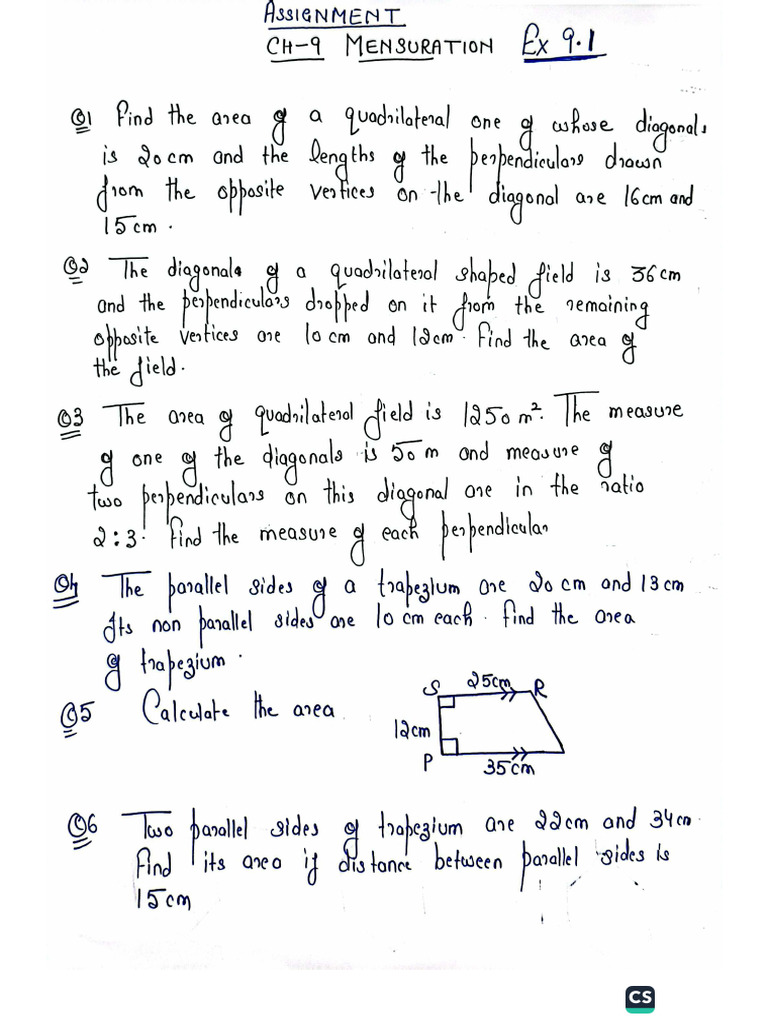 ASSIGNMENT
CH-9 MENSURATION Ex 9.1
Q1 Find the area of a quadrilateral one of whose diagonals
is 20cm and the lengths of the perpendiculars drawn
from the opposite vertices on the diagonal are 16cm and
15cm.
Q2 The diagonals of a quadrilateral shaped field is 36cm
and the perpendiculars dropped on it from the remaining
opposite vertices are 10cm and 12cm. Find the area of
the field.
Q3 The area of quadrilateral field is 1250 m². The measure
of one of the diagonals is 50 m and measure of
two perpendiculars on this diagonal are in the ratio
2:3. Find the measure of each perpendicular
Q4 The parallel sides of a trapezium are 20 cm and 13cm
Its non parallel sides are 10 cm each. Find the area
of trapezium.
Q5 Calculate the area
S 25cm R
12cm
P 35cm
Q6 Two parallel sides of trapezium are 22cm and 34cm.
Find its area if distance between parallel sides is
15cm
CS